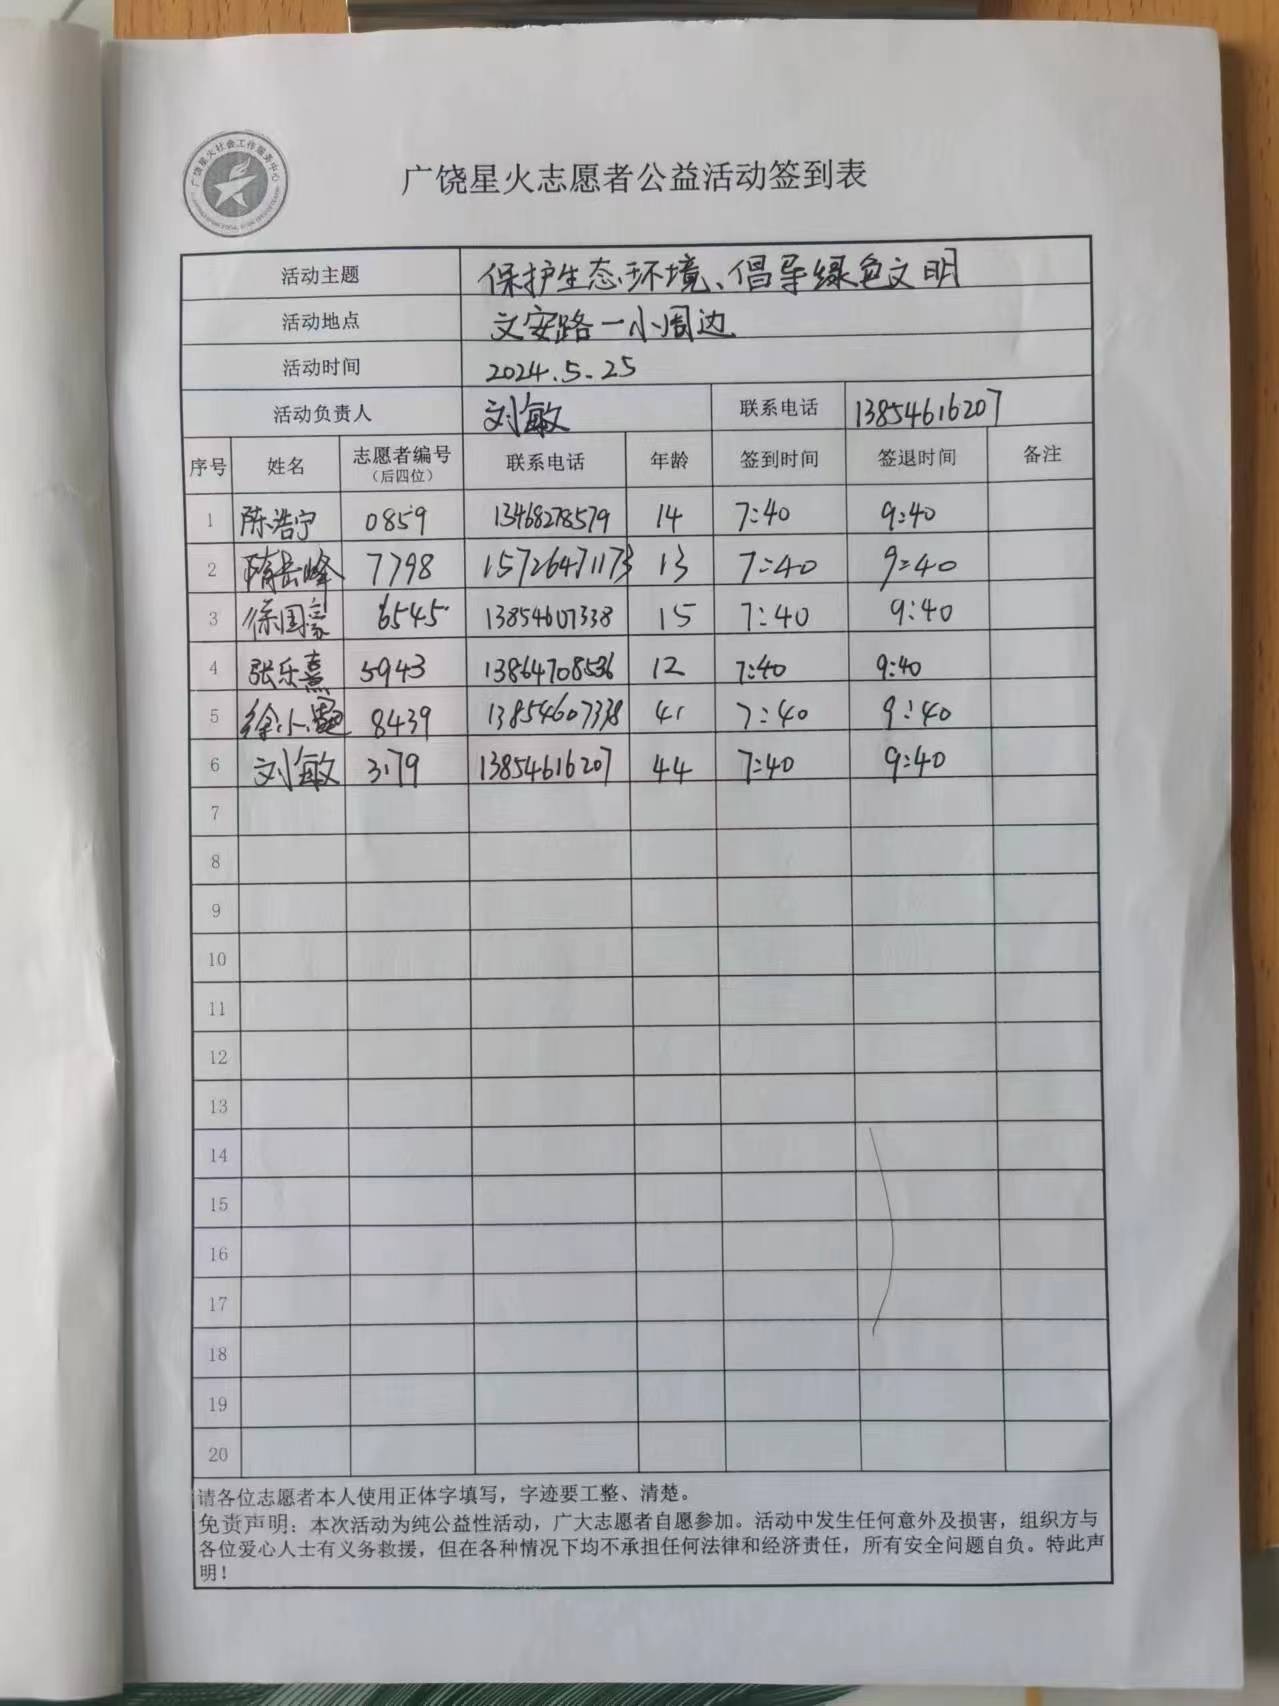 广饶星火社会工作服务中心
广饶星火志愿者公益活动签到表
活动主题 保护生态环境、倡导绿色文明
活动地点 文安路一小周边
活动时间 2024.5.25
活动负责人 刘敏 联系电话 13854616207
序号 姓名 志愿者编号 联系电话 年龄 签到时间 签退时间 备注
(后四位)
1 陈浩宁 0859 13468278579 14 7:40 9:40
2 隋岳峰 7798 15726471173 13 7:40 9:40
3 徐国豪 6545 13854607338 15 7:40 9:40
4 张乐熹 5943 13864708536 12 7:40 9:40
5 徐小 8439 13854607338 41 7:40 9:40
6 刘敏 3179 13854616207 44 7:40 9:40
7
8
9
10
11
12
13
14
15
16
17
18
19
20
请各位志愿者本人使用正体字填写，字迹要工整、清楚。
免责声明：本次活动为纯公益性活动，广大志愿者自愿参加。活动中发生任何意外及损害，组织方与
各位爱心人士有义务救援，但在各种情况下均不承担任何法律和经济责任，所有安全问题自负。特此声
明！